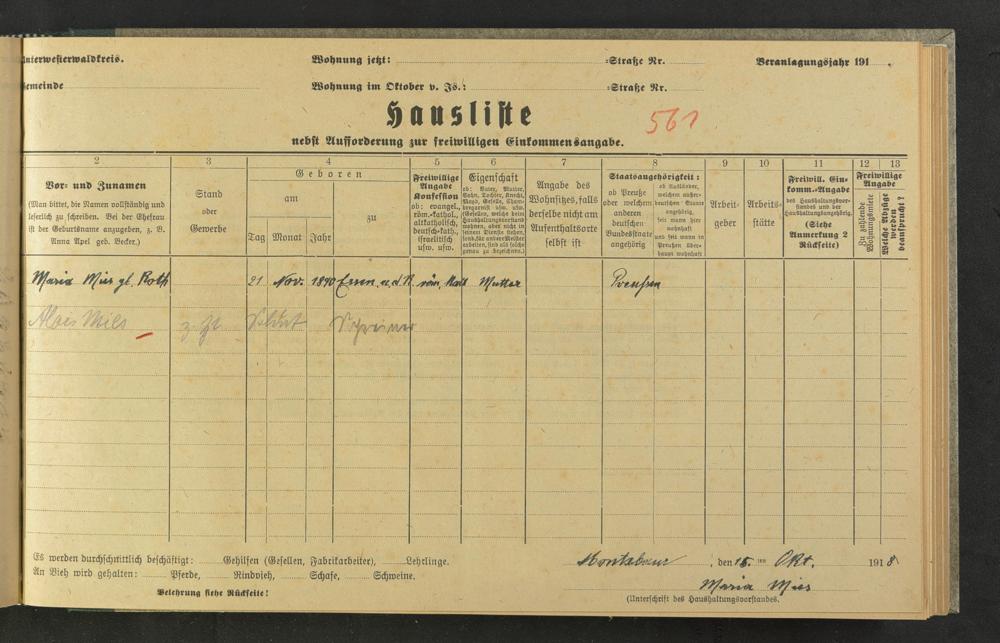 Unterwesterwaldkreis. Wohnung jetzt: -Straße Nr. Veranlagungsjahr 191 .
Gemeinde Wohnung im Oktober v. Js.: -Straße Nr.
Hausliste
561
nebst Aufforderung zur freiwilligen Einkommensangabe.
2 3 4 5 6 7 8 9 10 11 12 13
Vor- und Zunamen
(Man bittet, die Namen vollständig und
leserlich zu schreiben. Bei der Ehefrau
ist der Geburtsname anzugeben, z. B.
Anna Apel geb. Becker.)
Stand
oder
Gewerbe
Geboren
am
zu
Tag Monat Jahr
Freiwillige
Angabe
Konfession
ob: evangel.,
röm.-kathol.,
altkatholisch,
deutsch-kath.,
israelitisch
usw. usw.
Eigenschaft
ob: Vater, Mutter,
Sohn, Tochter, Knecht,
Magd, Geselle,
Angabe des
Wohnsitzes, falls
derselbe nicht am
Aufenthaltsorte
selbst ist
Staatsangehörigkeit:
ob Preuße
oder welchem
anderen
deutschen
Bundesstaate
angehörig
ob Ausländer,
welchem außer-
deutschen Staate
angehörig,
seit wann hier
wohnhaft
und seit wann in
Preußen über-
haupt wohnhaft
Arbeit-
geber
Arbeits-
stätte
Freiwill. Ein-
komm.-Angabe
des Haushaltungsvor-
standes und der
Haushaltungsangehörig.
(Siehe
Anmerkung 2
Rückseite)
Freiwillige
Angabe
Zu zahlende
Wohnungsmiete
Welche Abzüge
werden
beansprucht?
Maria Mies gb. Roth 21 Nov. 1890 röm. Kath Mutter Preußen
Alois Mies z. Zt Soldat Schreiner
Es werden durchschnittlich beschäftigt: Gehilfen (Gesellen, Fabrikarbeiter), Lehrlinge.
An Vieh wird gehalten: Pferde, Rindvieh, Schafe, Schweine.
Belehrung siehe Rückseite!
Montabaur, den 18. ten Okt. 1918
Maria Mies
(Unterschrift des Haushaltungsvorstandes.